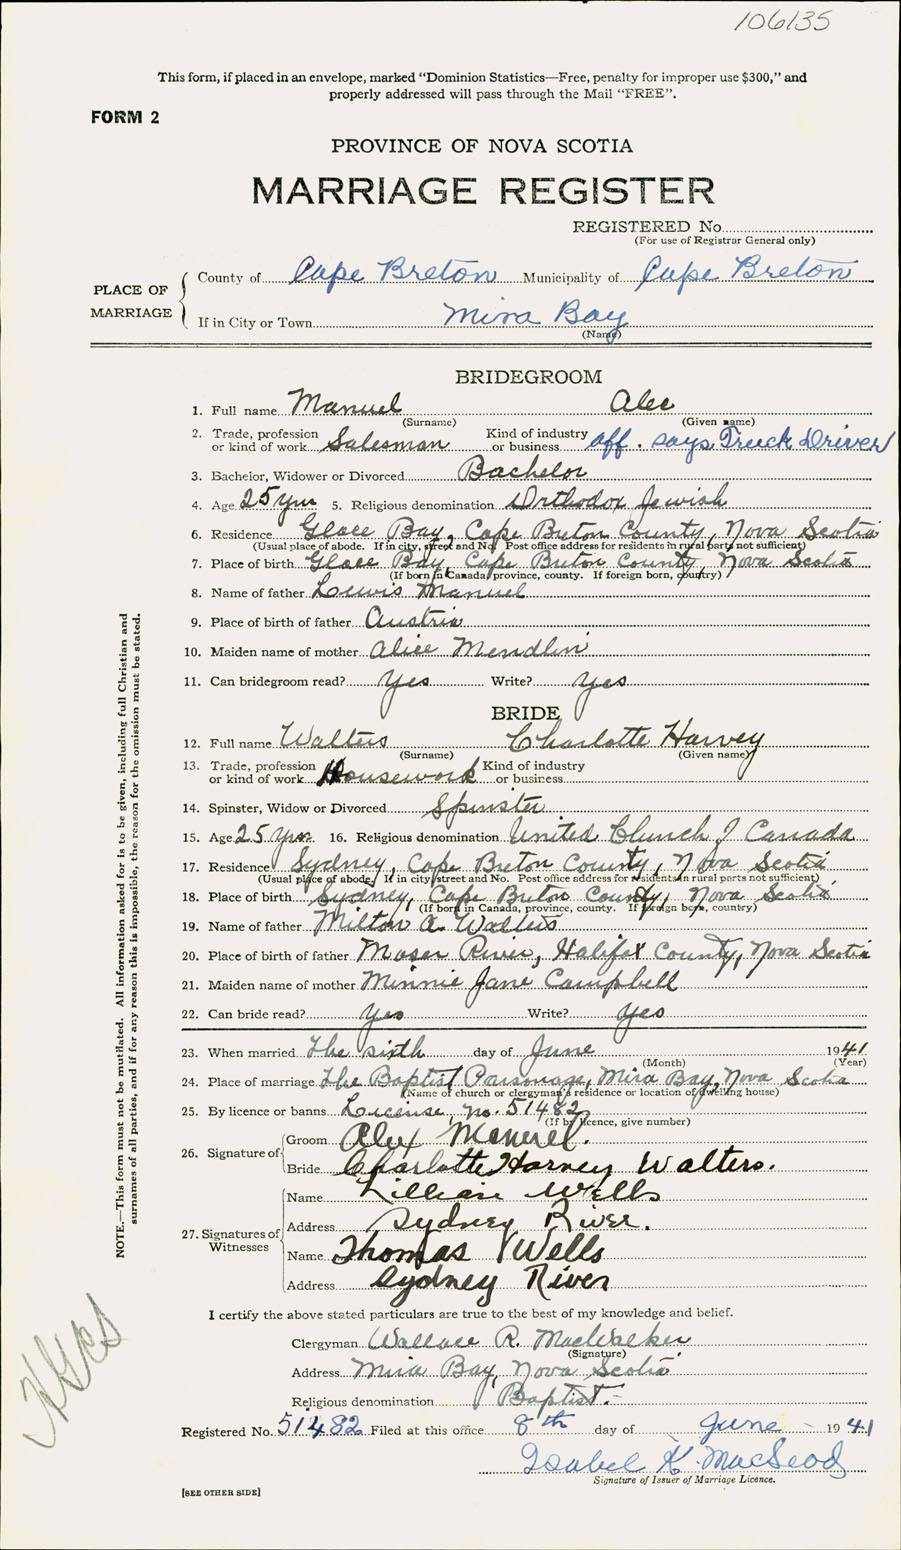 106135
This form, if placed in an envelope, marked "Dominion Statistics—Free, penalty for improper use $300," and
properly addressed will pass through the Mail "FREE".
FORM 2
PROVINCE OF NOVA SCOTIA
MARRIAGE REGISTER
REGISTERED No.
(For use of Registrar General only)
PLACE OF MARRIAGE
County of Cape Breton Municipality of Cape Breton
If in City or Town Mira Bay
(Name)
BRIDEGROOM
1. Full name Manuel Alec
(Surname) (Given name)
2. Trade, profession or kind of work Salesman Kind of industry or business off. says Truck Driver
3. Bachelor, Widower or Divorced Bachelor
4. Age 25 yrs 5. Religious denomination Orthodox Jewish
6. Residence Glace Bay, Cape Breton County, Nova Scotia
(Usual place of abode. If in city, street and No. Post office address for residents in rural parts not sufficient)
7. Place of birth Glace Bay, Cape Breton County, Nova Scotia
(If born in Canada province, county. If foreign born, country)
8. Name of father Lewis Manuel
9. Place of birth of father Austria
10. Maiden name of mother Alice Mendlin
11. Can bridegroom read? Yes Write? Yes
BRIDE
12. Full name Walters Charlotte Harvey
(Surname) (Given name)
13. Trade, profession or kind of work Housework Kind of industry or business
14. Spinster, Widow or Divorced Spinster
15. Age 25 yrs 16. Religious denomination United Church of Canada
17. Residence Sydney, Cape Breton County, Nova Scotia
(Usual place of abode. If in city street and No. Post office address for residents in rural parts not sufficient)
18. Place of birth Sydney, Cape Breton County, Nova Scotia
(If born in Canada, province, county. If foreign born, country)
19. Name of father Milton A. Walters
20. Place of birth of father Moser River, Halifax County, Nova Scotia
21. Maiden name of mother Minnie Jane Campbell
22. Can bride read? Yes Write? Yes
23. When married The sixth day of June 1941
(Month) (Year)
24. Place of marriage The Baptist Parsonage, Mira Bay, Nova Scotia
(Name of church or clergyman's residence or location of dwelling house)
25. By licence or banns License, no. 51482
(If by licence, give number)
26. Signature of
Groom Alex Manuel.
Bride Charlotte Harvey Walters.
27. Signatures of Witnesses
Name Lillian Wells
Address Sydney River.
Name Thomas Wells
Address Sydney River
I certify the above stated particulars are true to the best of my knowledge and belief.
Clergyman Wallace R. MacWalker
(Signature)
Address Mira Bay, Nova Scotia
Religious denomination Baptist.
Registered No. 51482 Filed at this office 8th day of June 1941
Isabel K. MacLeod
Signature of Issuer of Marriage Licence.
[SEE OTHER SIDE]
NOTE.—This form must not be mutilated. All information asked for is to be given, including full Christian and
surnames of all parties, and if for any reason this is impossible, the reason for the omission must be stated.